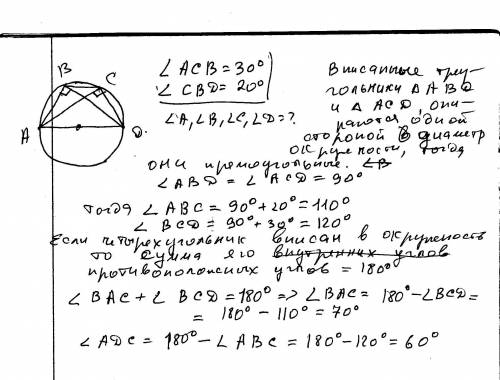 B C
A D.
∠ACB = 30°
∠CBD = 20°
∠A, ∠B, ∠C, ∠D = ?
Вписанные треу-
гольники △ABD
и △ACD, опи-
раются одной
стороной в диаметр
окружности, тогда
они прямоугольные.
∠ABD = ∠ACD = 90°
Тогда ∠ABC = 90° + 20° = 110°
∠BCD = 90° + 30° = 120°
Если четырехугольник вписан в окружность
то сумма его внутренних углов
противоположных углов = 180°
∠BAC + ∠BCD = 180° => ∠BAC = 180° - ∠BCD =
= 180° - 110° = 70°
∠ADC = 180° - ∠ABC = 180° - 120° = 60°